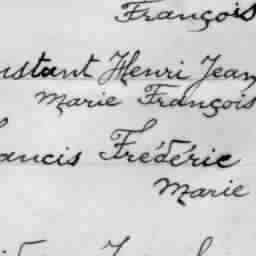 François
nstant Henri Jean
Marie François
ancis Frédéric
Marie